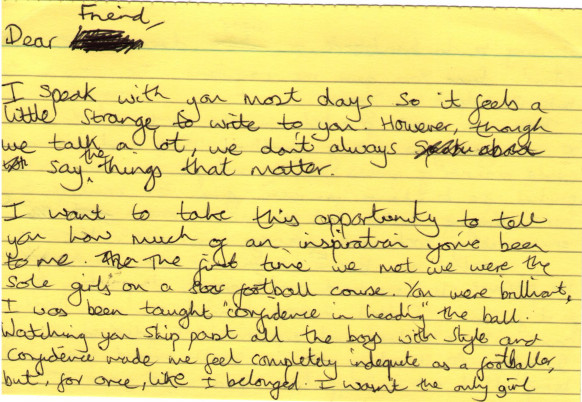 Friend,
Dear
I speak with you most days so it feels a
little strange to write to you. However, though
we talk a lot, we don't always speak about
say the things that matter.
I want to take this opportunity to tell
you how much of an inspiration you've been
to me. The first time we met we were the
sole girls on a football course. You were brilliant,
I was been taught "confidence in heading" the ball.
Watching you ship past all the boys with style and
confidence made me feel completely indequte as a footballer,
but, for once, like I belonged. I wasn't the only girl